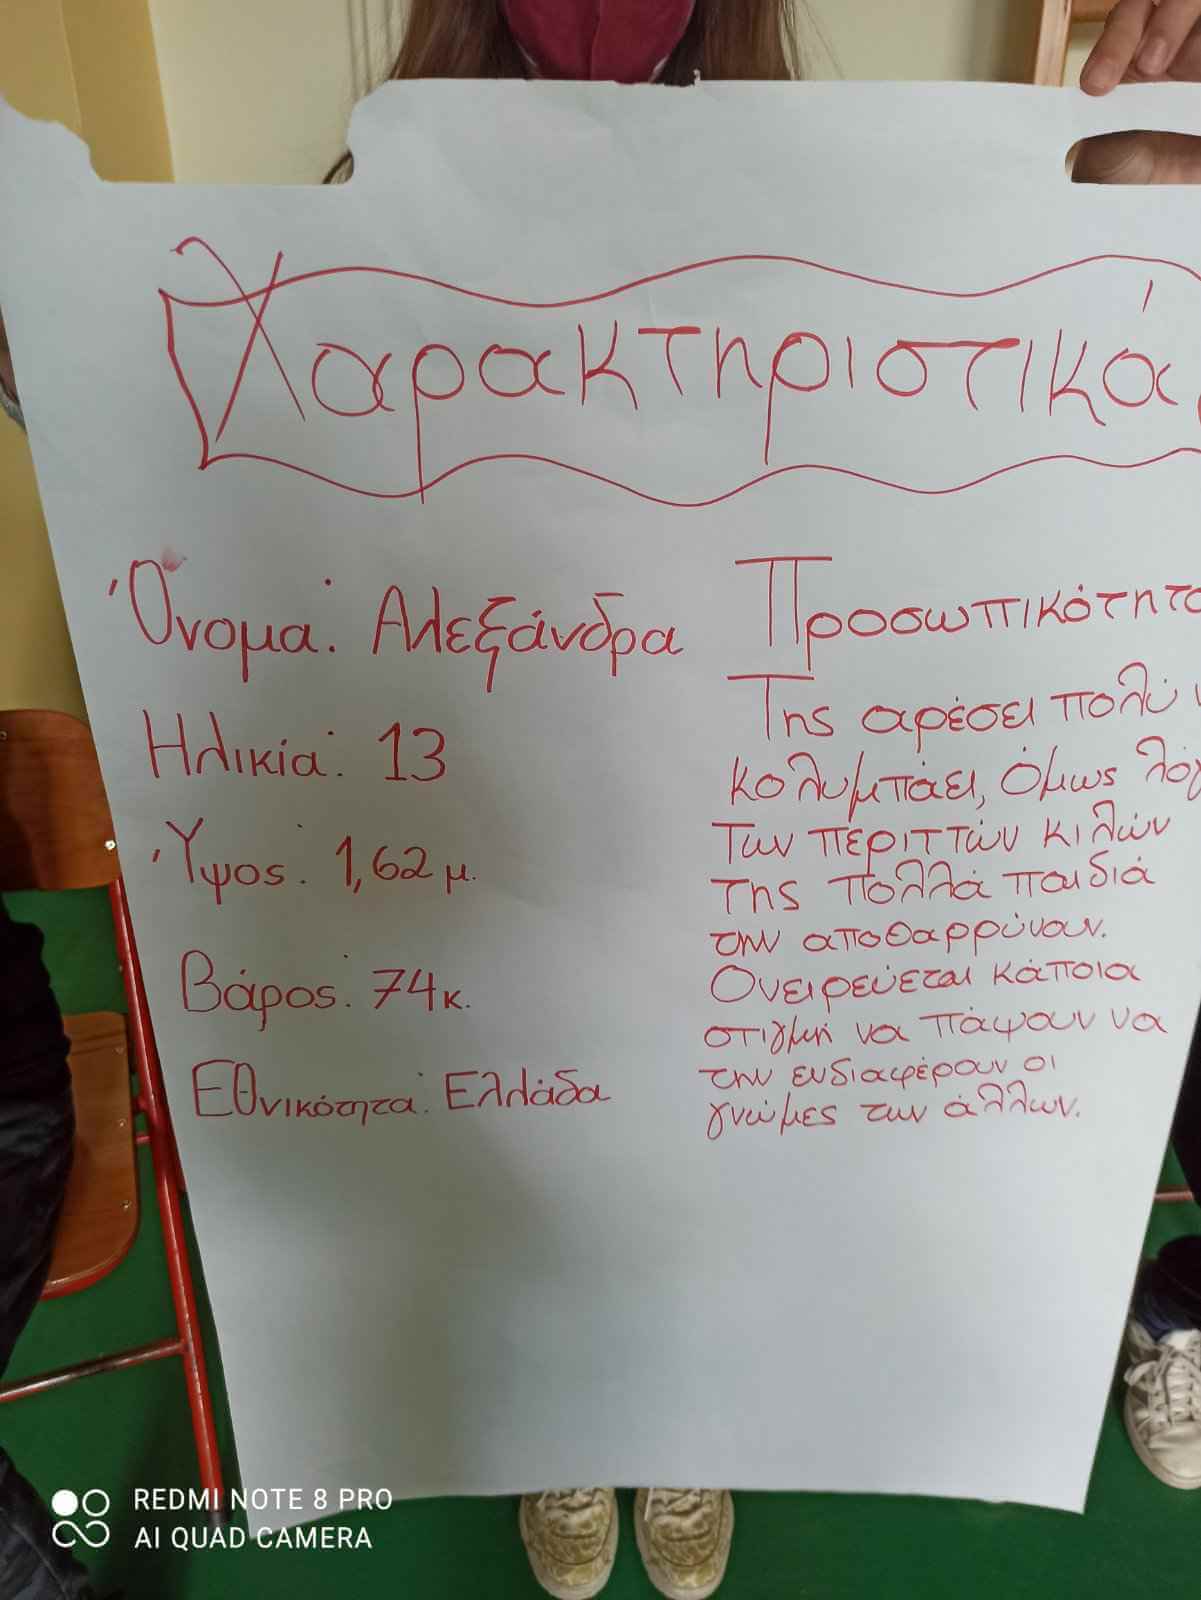 Χαρακτηριστικά
Όνομα: Αλεξάνδρα
Ηλικία: 13
Ύψος: 1,62 μ.
Βάρος: 74κ.
Εθνικότητα: Ελλάδα
Προσωπικότητα
Της αρέσει πολύ
κολυμπάει, όμως λόγ
των περιττών κιλών
της πολλά παιδιά
την αποθαρρύνουν.
Ονειρεύεται κάποια
στιγμή να πάψουν να
την ενδιαφέρουν οι
γνώμες των άλλων.
REDMI NOTE 8 PRO
AI QUAD CAMERA